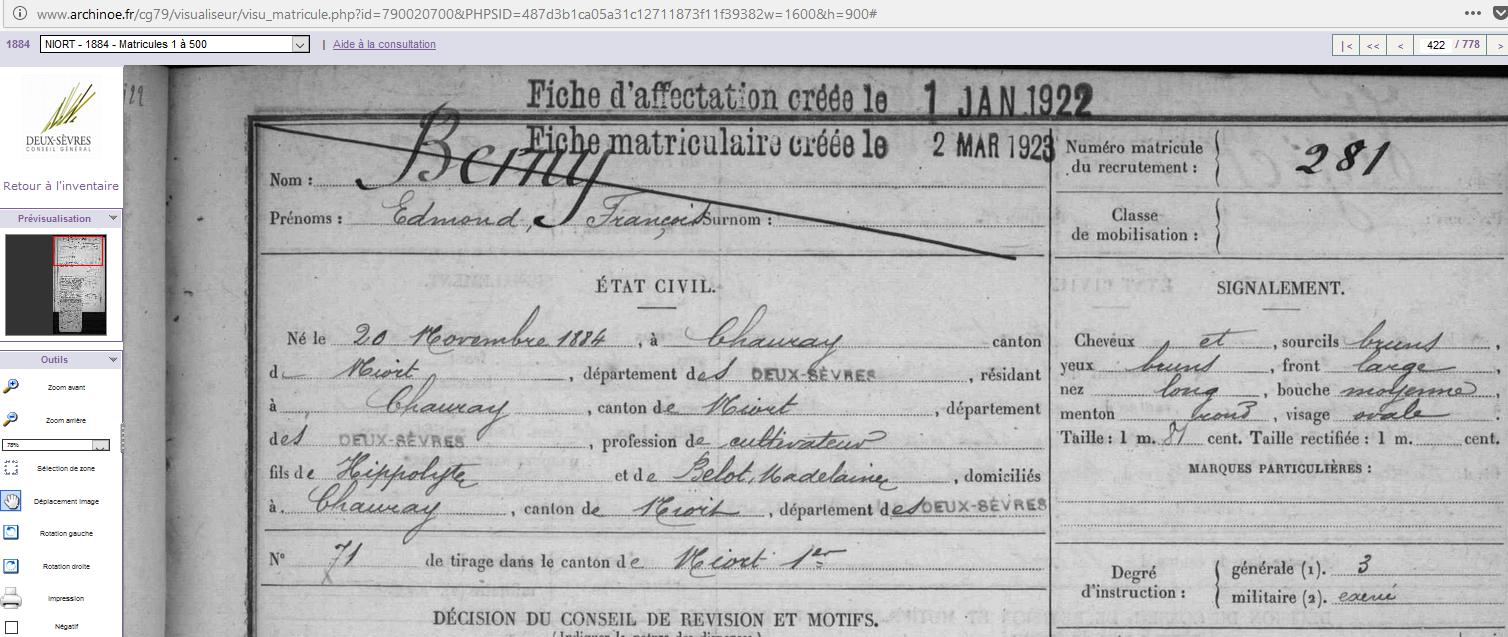 www.archinoe.fr/cg79/visualiseur/visu_matricule.php?id=790020700&PHPSID=487d3b1ca05a31c12711873f11f39382w=1600&h=900#
1884 NIORT - 1884 - Matricules 1 à 500 | Aide à la consultation |< << < 422 / 778 >
DEUX-SÈVRES
CONSEIL GÉNÉRAL
Retour à l'inventaire
Prévisualisation
Outils
Zoom avant
Zoom arrière
78%
Sélection de zone
Déplacement Image
Rotation gauche
Rotation droite
Impression
Négatif
Fiche d'affectation créée le 1 JAN.1922
Fiche matriculaire créée le 2 MAR 1923
Nom : Berny
Prénoms : Edmond, François Surnom :
Numéro matricule du recrutement : 281
Classe de mobilisation :
ÉTAT CIVIL.
Né le 20 Novembre 1884, à Chauray canton
de Niort, département des DEUX-SÈVRES, résidant
à Chauray, canton de Niort, département
des DEUX-SÈVRES, profession de cultivateur
fils de Hippolyte et de Belot, Madelaine, domiciliés
à Chauray, canton de Niort, département des DEUX-SÈVRES
N° 71 de tirage dans le canton de Niort 1er
DÉCISION DU CONSEIL DE REVISION ET MOTIFS.
SIGNALEMENT.
Cheveux et, sourcils bruns,
yeux bruns, front large,
nez long, bouche moyenne,
menton rond, visage ovale.
Taille : 1 m. 81 cent. Taille rectifiée : 1 m. cent.
MARQUES PARTICULIÈRES :
Degré d'instruction : générale (1). 3
militaire (2). exercé